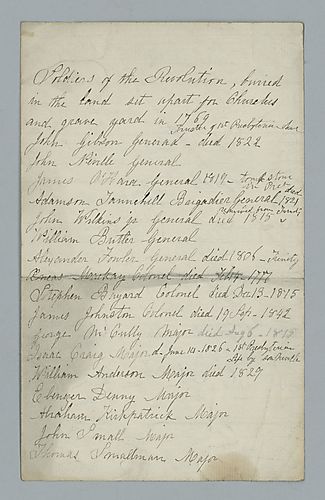 Soldiers of the Revolution, buried
in the land set apart for Churches
and grave yard in 1769
Trustee of 1st Presbyterian
John Gibson General - died 1822
John Neville General
James O'Hara General 1819 - tomb stone
Adamson Tannehill Brigadier General 1821
John Wilkins jr General died 1815
William Butler General
Alexander Fowler General died 1806 - Trinity
Eneas Mackay Colonel died 1777
Stephen Bayard Colonel died Dec 13 - 1815
James Johnston Colonel died 19 Sep - 1842
George McCully Major died Aug 6 -
Isaac Craig Major d - June 14 - 1826 - 1st Presbyterian
William Anderson Major died 1829
Ebenezer Denny Major
Abraham Kirkpatrick Major
John Small Major
Thomas Smallman Major